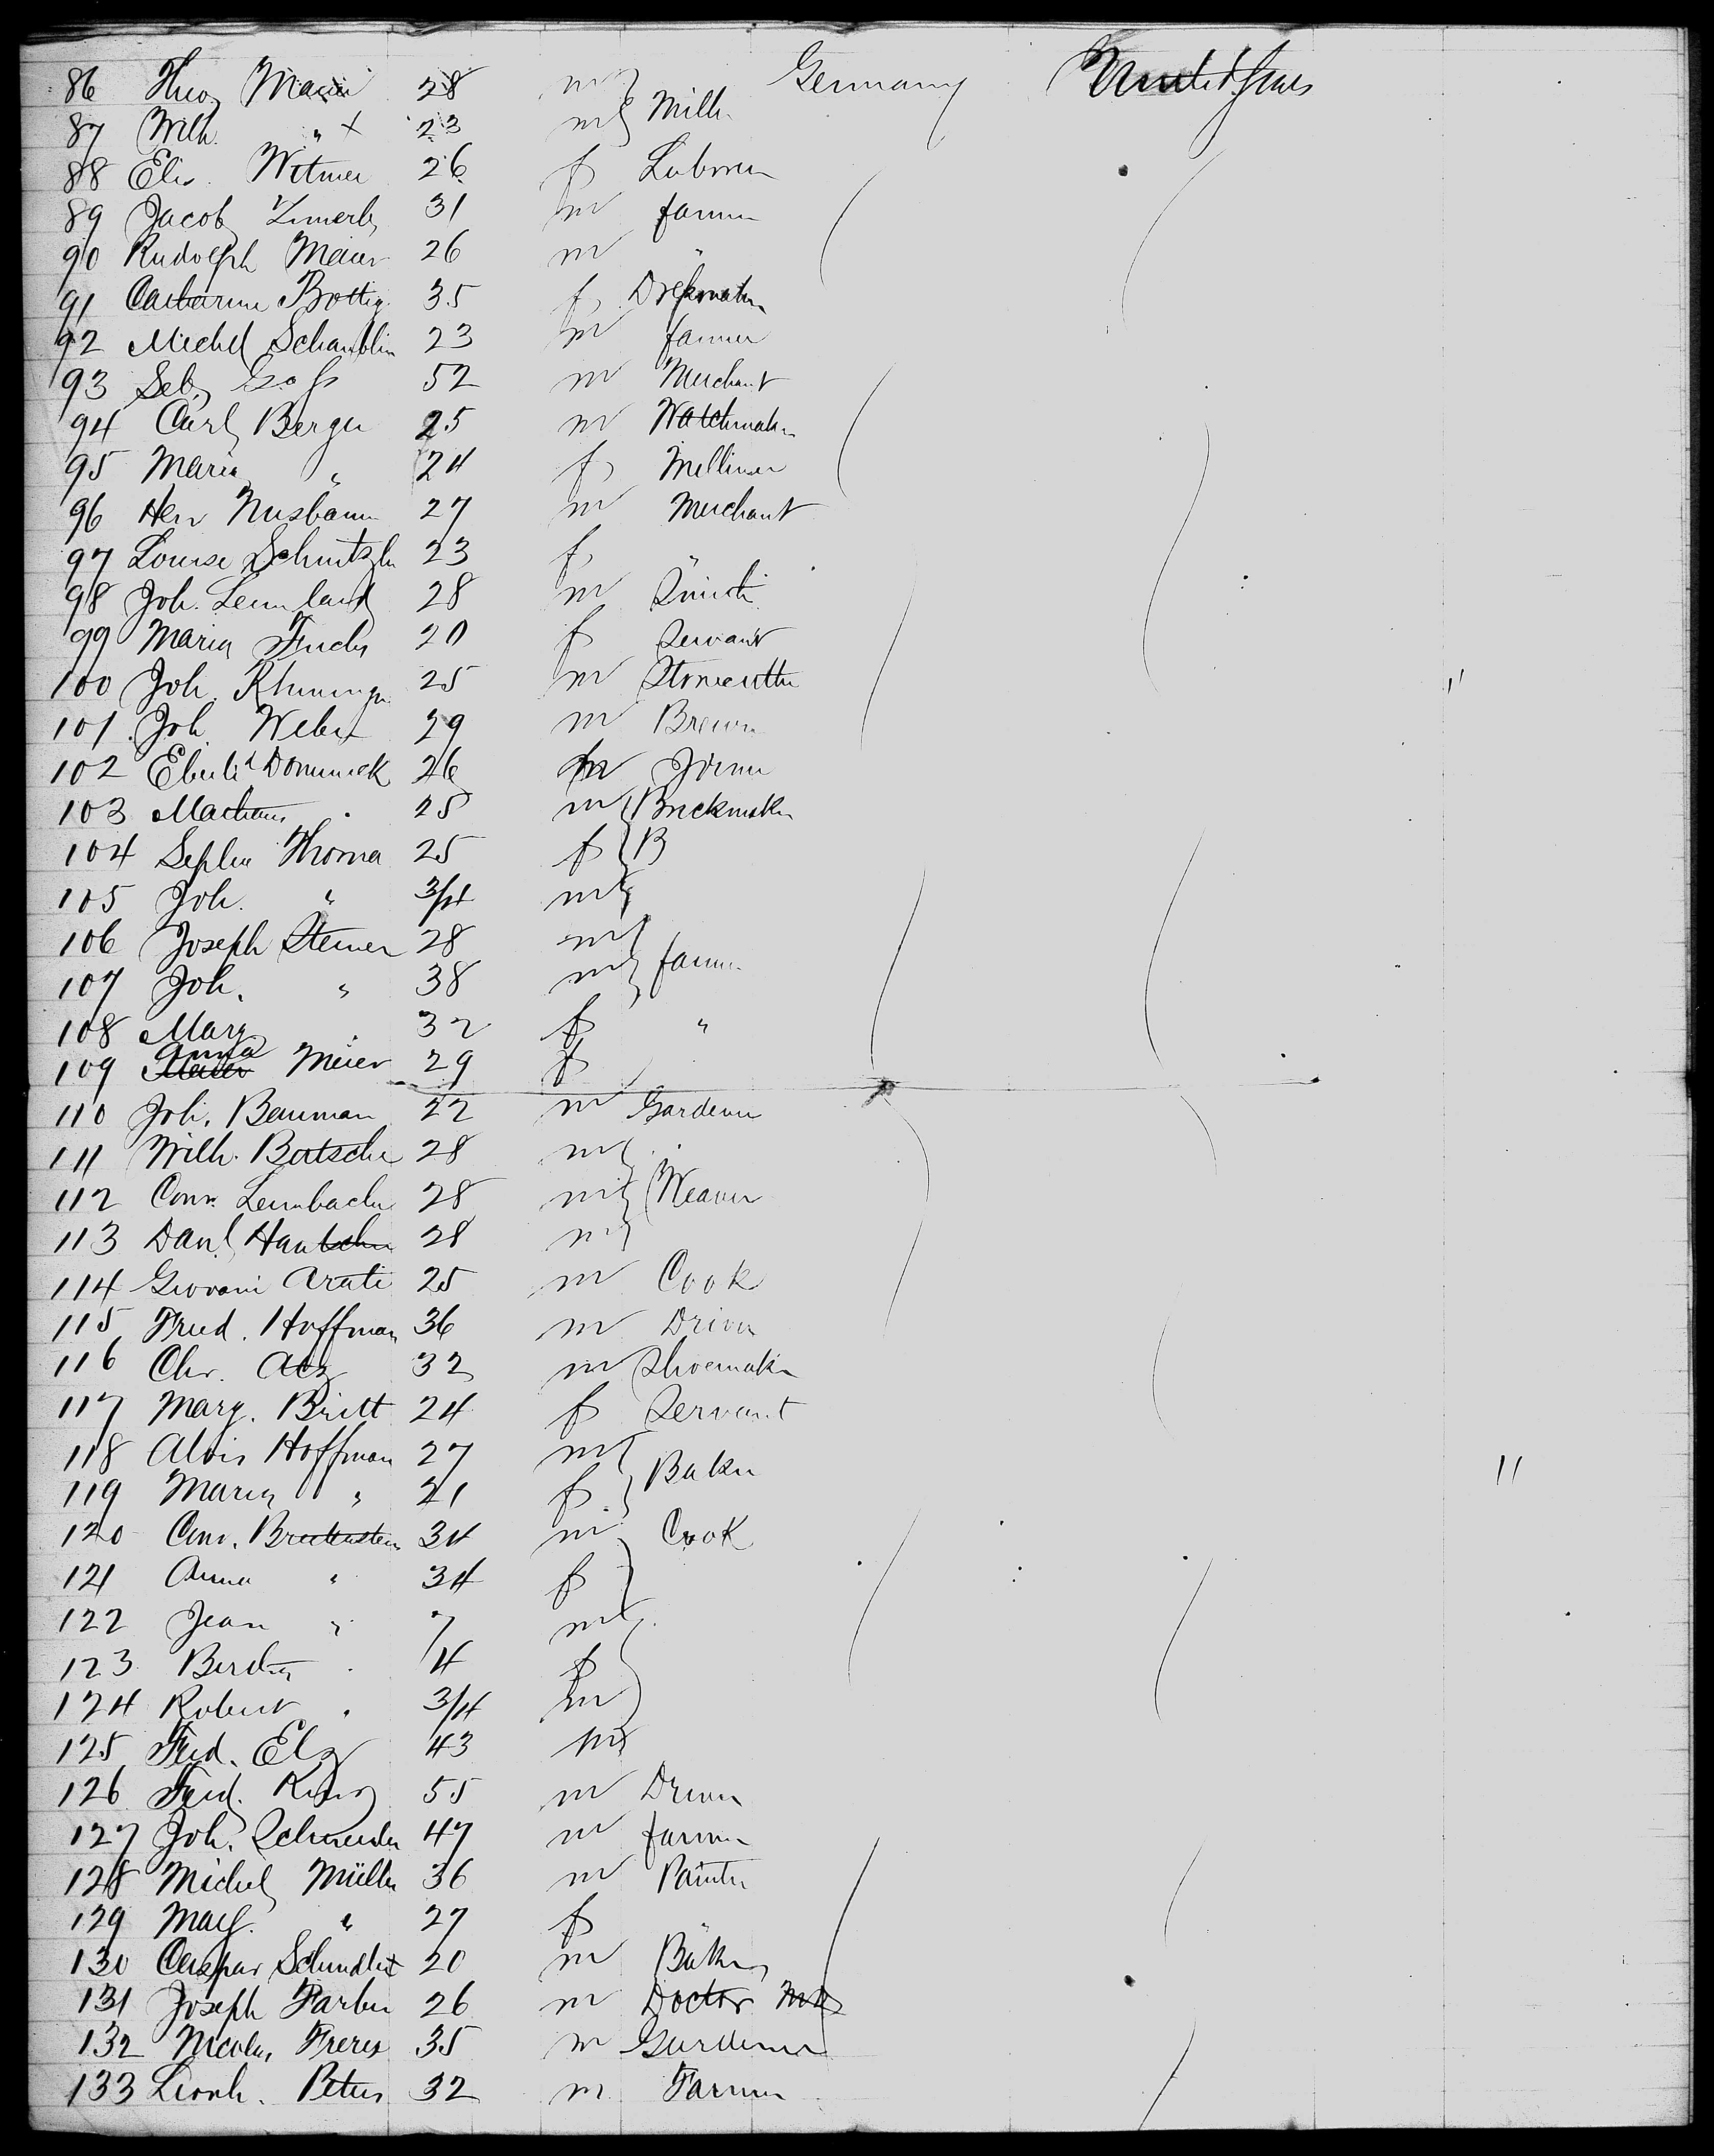 86 Theo. Maier 28 m Germany United States
87 Wilh. " x 23 m Mill.
88 Elis. Witmer 26 f Laborer
89 Jacob Zimerly 31 m farmer
90 Rudolph Meier 26 m "
91 Catharine Bottig 35 f Dressmaker
92 Michel Schaublin 23 m farmer
93 Seb. 52 m Merchant
94 Carl Berger 25 m Watchmaker
95 Maria " 24 f Milliner
96 Hen Nusbaum 27 m Merchant
97 Louise 23 f "
98 Joh. 28 m Smith
99 Maria Fuchs 20 f Servant
100 Joh. 25 m Stonecutter "
101 Joh. Weber 29 m Brewer
102 Eberli Dominick 26 m Joiner
103 " 25 m Brickmaker
104 Thoma 25 f B
105 Joh. " 3/4 m
106 Joseph Steiner 28 m
107 Joh. " 38 m farmer
108 Marg 32 f "
109 Anna Meier 29 f
110 Joh. Bauman 22 m Gardener
111 Wilh. Bertsche 28 m
112 Conr. Leimbacher 28 m Weaver
113 Danl. 28 m
114 Giovani Arati 25 m Cook
115 Fried. Hoffman 36 m Driver
116 Chr. 32 m Shoemaker
117 Marg. Britt 24 f Servant
118 Alois Hoffman 27 m Baker "
119 Maria " 21 f
120 Conr. Breitenstein 34 m Cook
121 Anna " 34 f
122 Jean " 7 m
123 Bertha " 4 f
124 Robert " 3/4 m
125 Fred. Elz 43 m
126 Fried. 55 m Driver
127 Joh. Schneider 47 m farmer
128 Michel Müller 36 m Painter
129 Marg. " 27 f "
130 Caspar 20 m Baker
131 Joseph Farber 26 m Doctor MD
132 Nicolas Freres 35 m Gardener
133 Leonh. Peters 32 m Farmer